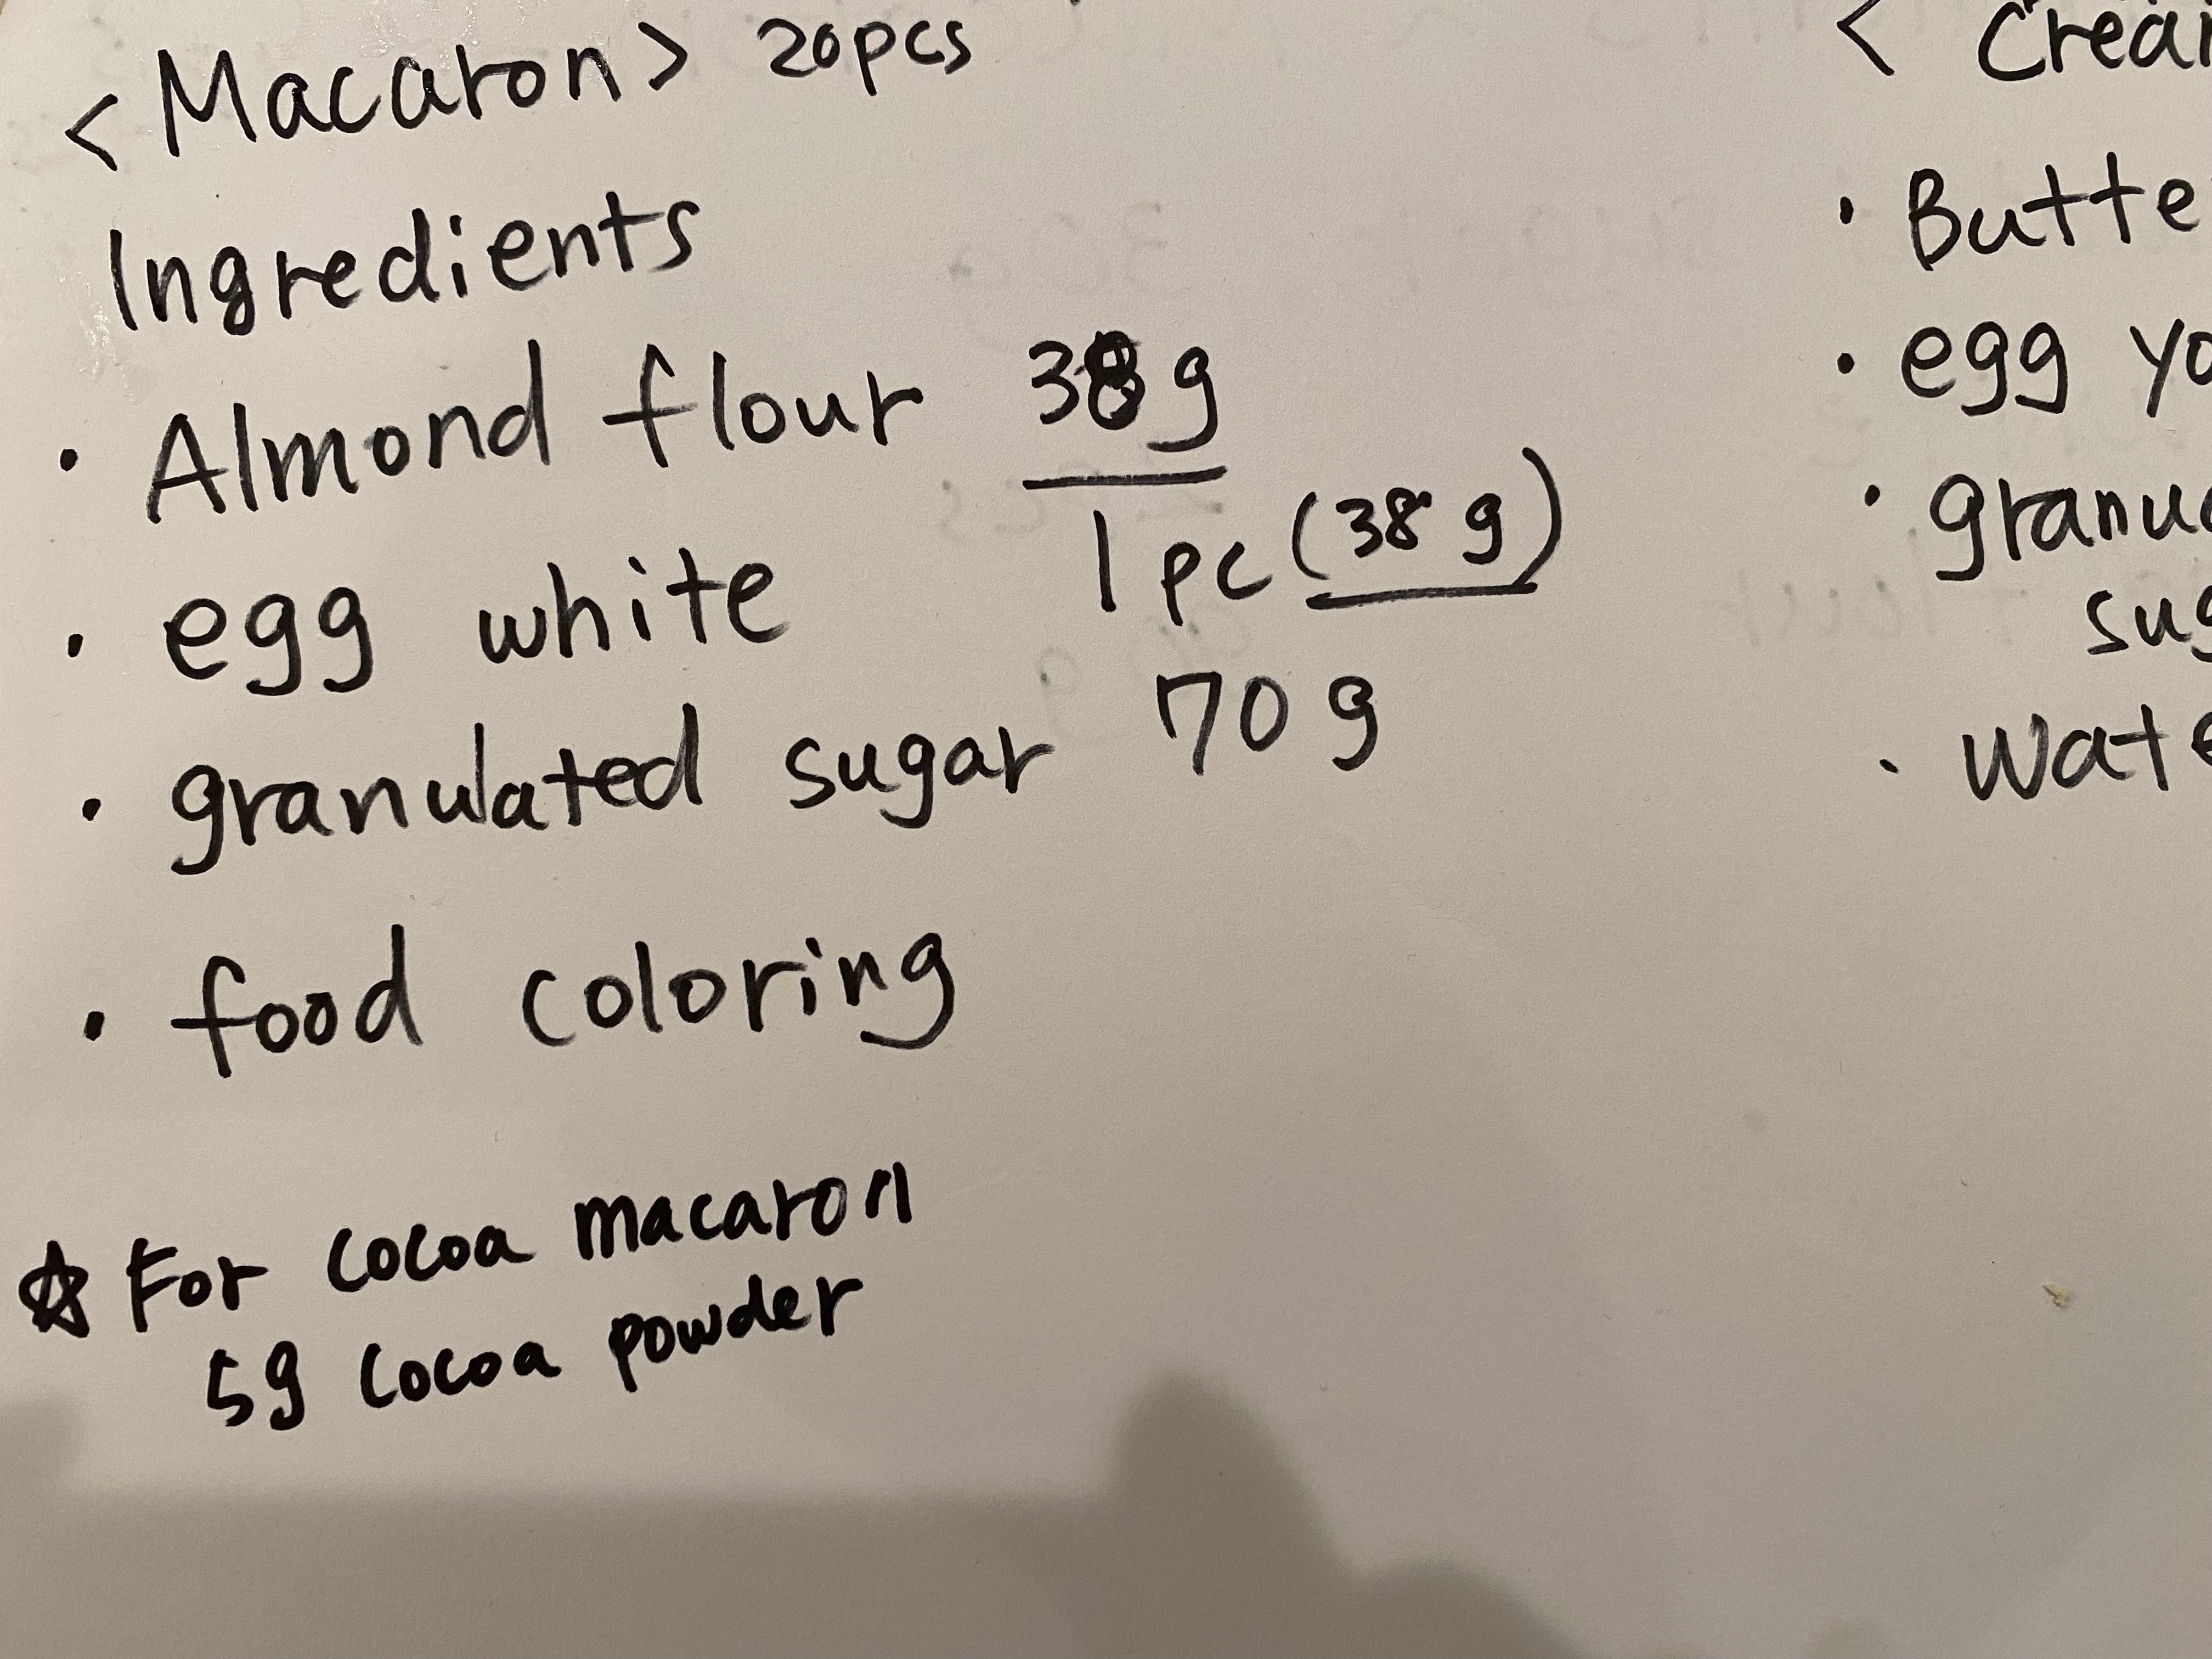 <Macaron> 20pcs
Ingredients
· Almond flour 38g
· egg white 1pc (38g)
· granulated sugar 70g
· food coloring
☆ For cocoa macaron
5g cocoa powder
< Crea
· Butte
· egg yo
· granu
sug
· Wate